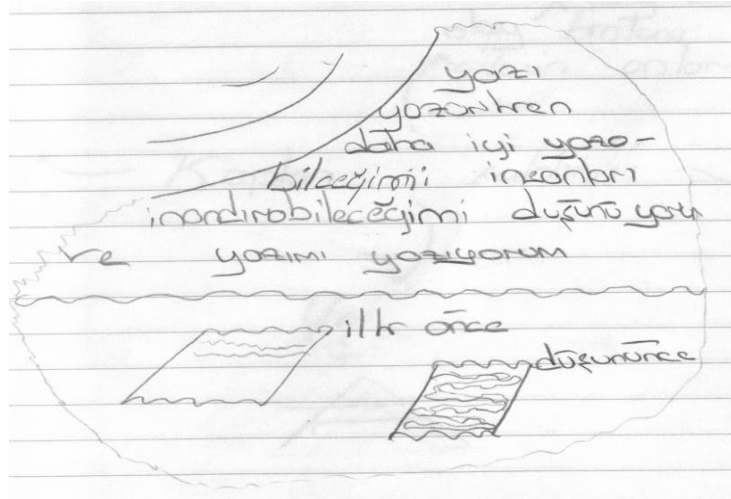 yazı
yazarken
daha iyi yaza-
bileceğimi insanları
inandırabileceğimi düşünüyor
ve yazımı yazıyorum
ilk önce
düşününce